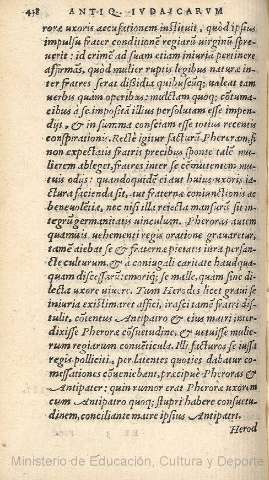 438 ANTIQ. IVDAICARVM
rorę uxoris accusationem instituit, quòd ipsius
impulsu frater conditionẽ regiarũ virginũ spre
uerit: id crimẽ ad suam etiam iniuria pertinere
affirmãs, quòd mulier ruptis legibus naturæ in-
ter fratres serat dissidia quibuscũq; ualeat tam
uerbis quàm operibus: mulctam quoq; cõtuma
cibus à se impositã illius persolutam esse impen
dijs, & in summa consciam esse totius recentis
conspirationis. Rectè igitur facturũ Pherorem, si
non expectatis fratris precibus sponte talẽ mu-
lierem ableget, fratres inter se cõmittentem mu-
tuis odijs: quandoquidẽ ei aut huius uxoris ia-
ctura facienda sit, aut fraternæ coniunctionis ac
beneuolẽtiæ, nec nisi illa reiecta mansurũ sic in-
tegrũ germanitatis uinculum. Pheroras autem
quamuis uehementi regis oratione grauaretur,
tamẽ aiebat se & fraternæ pietatis iura persan-
ctè culturum, & à coniugali caritate haudqua-
quam discessurũ: emoriq; se malle, quàm sine di
lecta uxore uiuere. Tum Herodes licet graui se
iniuria existimaret affici, irasci tamẽ fratri dis-
tulit, cõtentus Antipatro & eius matri inter-
dixisse Pheroræ cõsuetudine, & uetuisse mulie-
rum regiarum conuẽticula. Illi facturos se iussa
regis polliciti, per latentes quoties dabatur co-
messationes cõueniebant, præcipuè Pheroras &
Antipater: quin rumor erat Pheroræ uxorem
cum Antipatro quoq; stupri habere consuetu-
dinem, conciliante matre ipsius Antipatri.
Herod
Ministerio de Educación, Cultura y Deporte